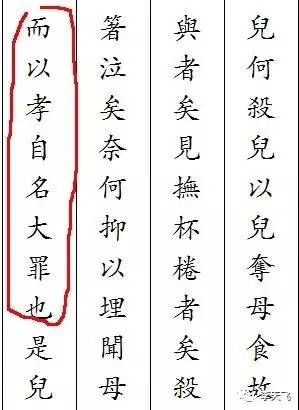 兒何殺兒以兒奪母食故
與者矣見撫杯棬者矣殺
箸泣矣奈何抑以埋聞母
而以孝自名大罪也是兒